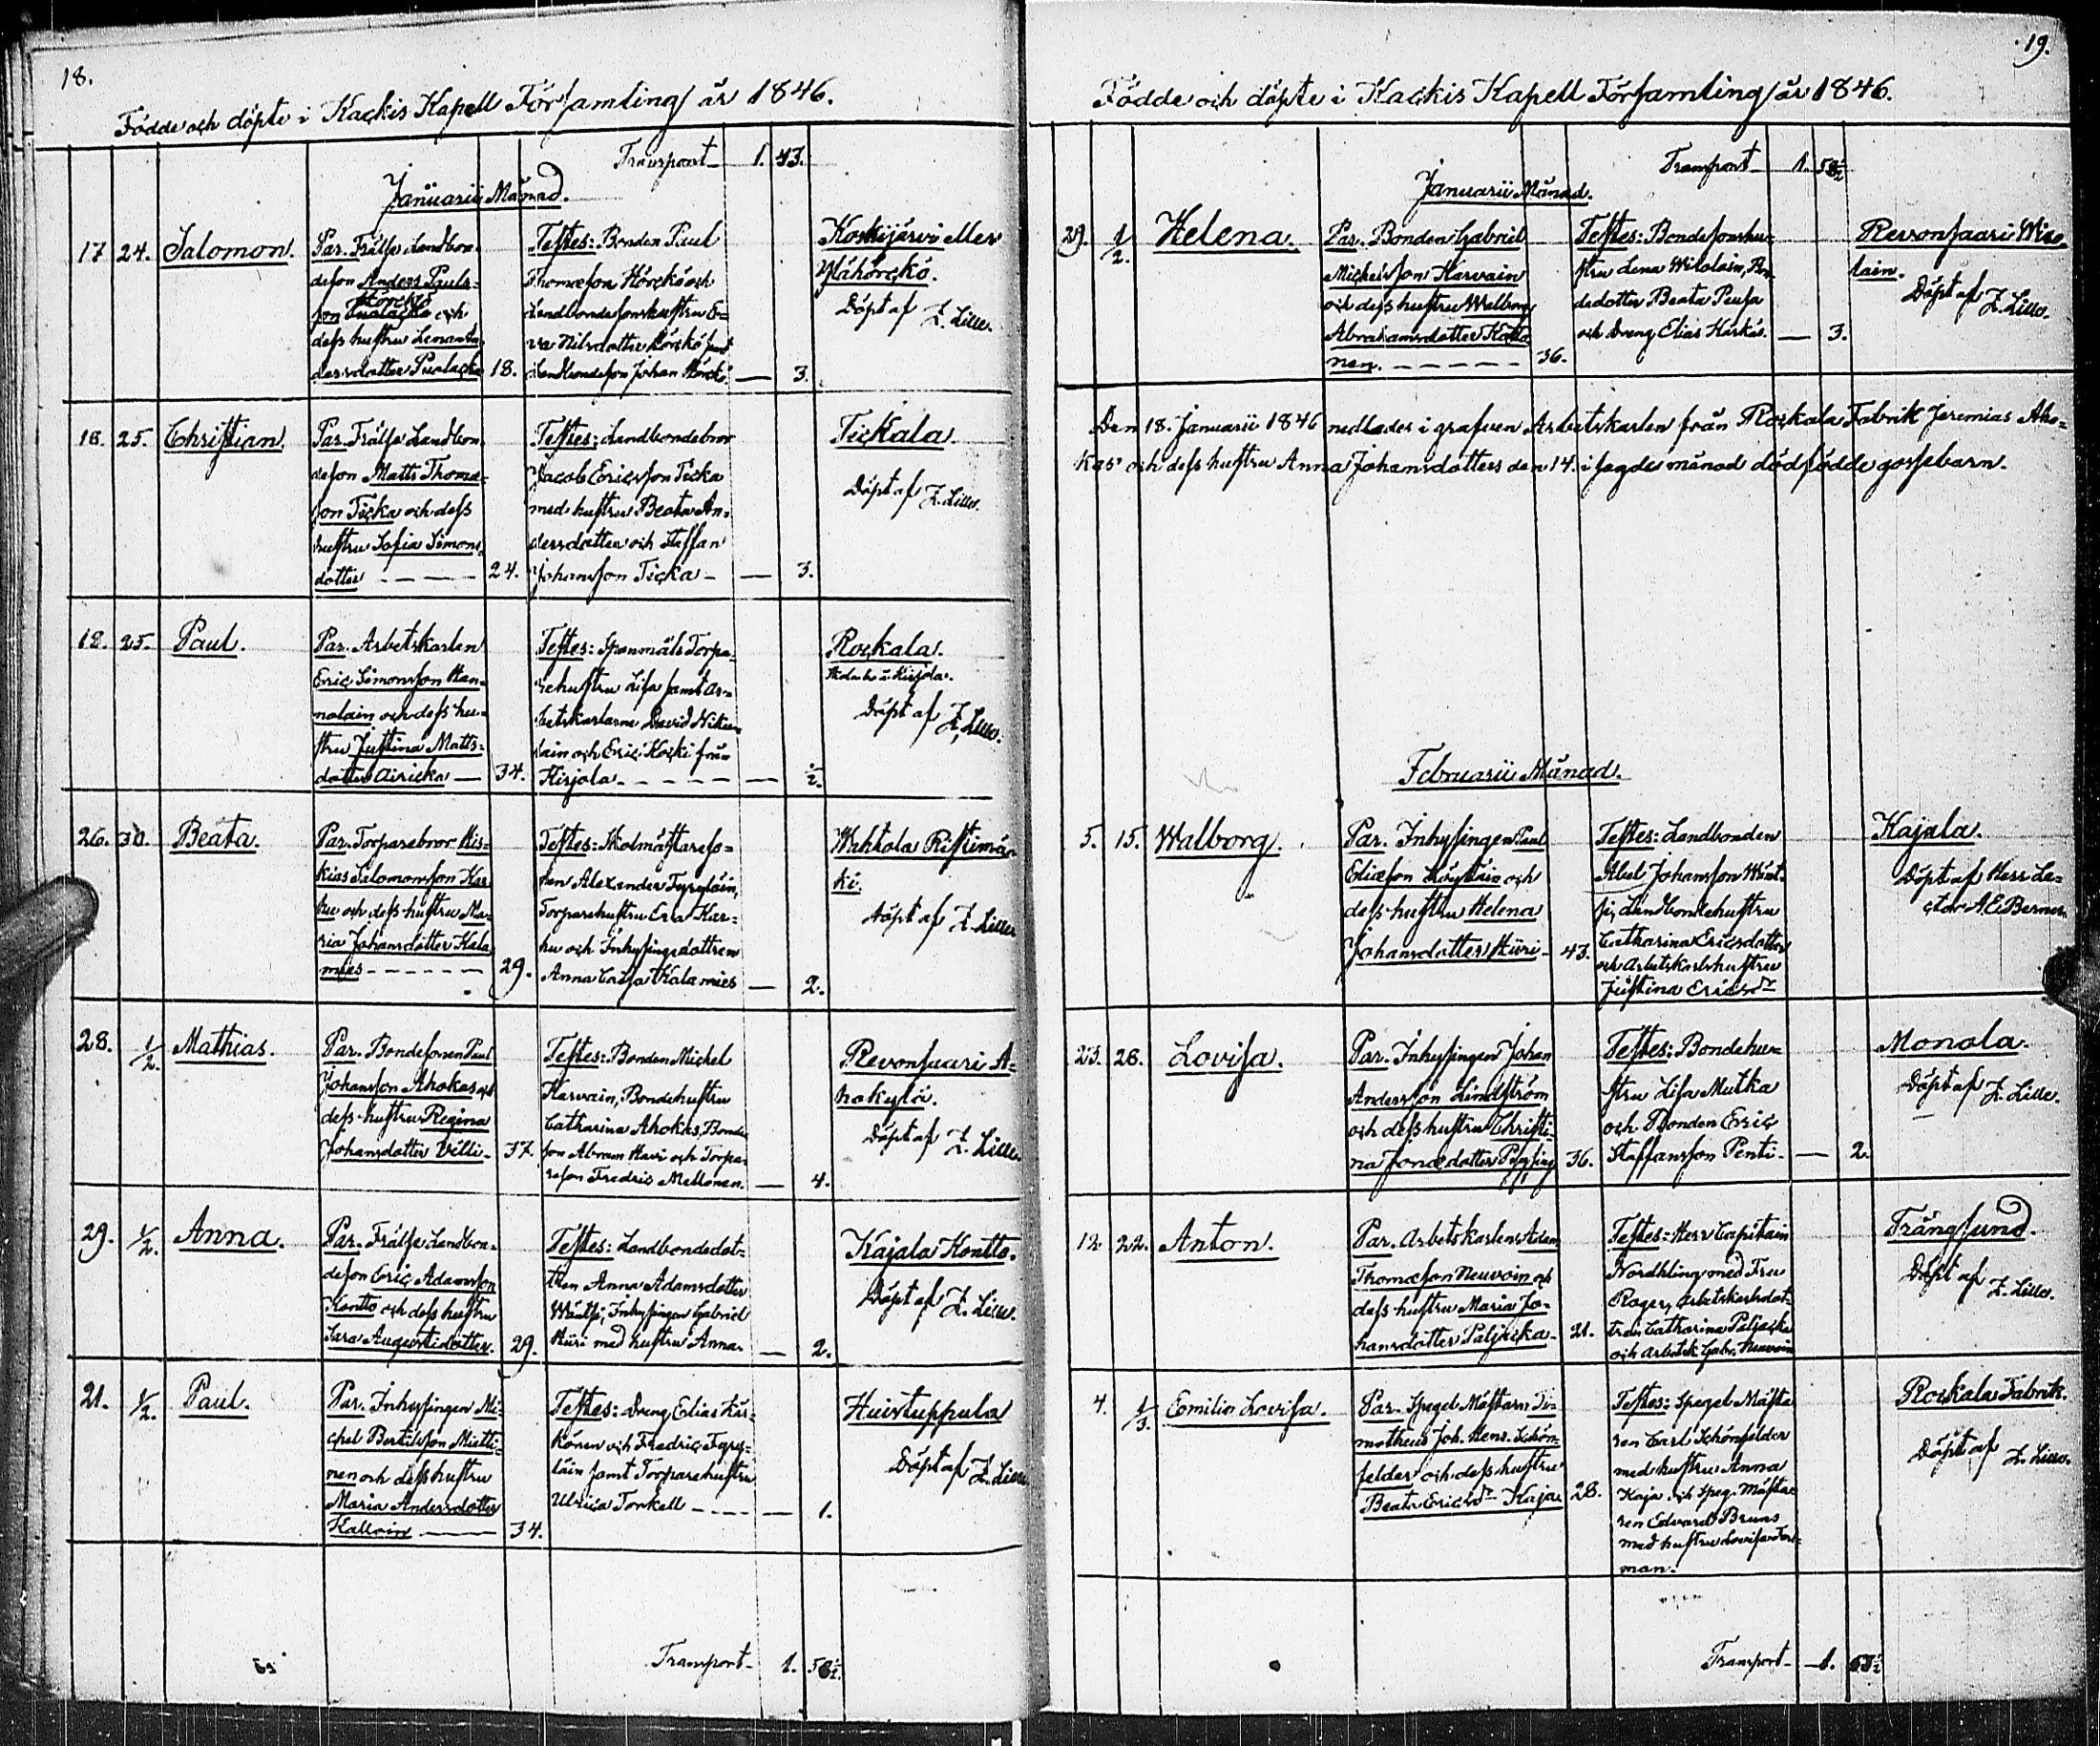 18.
Födde och döpte i Kackis Kapell Församling år 1846.
Transport 1. 43.
Januarii Månad.
17 24. Salomon.
Par. Frälse Landbon-
deson Anders Pauls-
Hörckö
son och
dess hustru Lena An-
dersdotter 18.
Testes: Bonden Paul
Thomæson Hörckö och
Landbondesonhustru E-
va Nilsdotter Hörckö samt
Landbondeson Johan Hörckö — 3.
Koskijärvi eller
Ylähörckö.
Döpt af Z. Lilius.
18. 25. Christian.
Par. Frälse Landbon-
deson Matts Thomæ-
son Ticka och dess
hustru Sofia Simons-
dotter - - - - 24.
Testes: Landbondebror
Jacob Ericsson Ticka
med hustru Beata An-
dersdotter och Staffan
Johansson Ticka — — 3.
Tickala.
Döpt af Z. Lilius.
18. 25. Paul.
Par. Arbetskarlen
Eric Simonsson Han-
nolain och dess hu-
stru Justina Matts-
dotter Airicka — 34.
Testes: Spanmåls Torpa-
rehustru Lisa samt Ar-
betskarlarne David Niku-
lain och Eric Kocki från
Kirjola - - - - - — ½.
Rockala.
Döpt af Z. Lilius.
26. 30. Beata.
Par. Torparebror His-
kias Salomonsson Kar-
hu och dess hustru Ma-
ria Johansdotter Kala-
mies - - - - - - 29.
Testes: Skolmästareso-
nen Alexander Tyryläin,
Torparehustru Eva Kar-
hu och Inhysingedottren
Anna Caisa Kalamies — 2.
Wahtola Ristimä-
ki.
Döpt af Z. Lilius
28. ½. Mathias.
Par. Bondesonen Paul
Johansson Ahokas och
dess hustru Regina
Johansdotter Villi- 37.
Testes: Bonden Michel
Karvain, Bondehustru
Catharina Ahokas, Bonde-
son Abram Havi och Torpa-
reson Fredric Mellonen. — 4.
Revonsaari A-
hokylä.
Döpt af Z. Lilius.
29. ½. Anna.
Par. Frälse Landbon-
deson Eric Adamsson
Kontto och dess hustru
Sara Augustidotter. 29.
Testes: Landbondedot-
tren Anna Adamsdotter
Wäntsi, Inhysingen Gabriel
Hüri med hustru Anna. — 2.
Kajala Kontto.
Döpt af Z. Lilius.
21. ½. Paul.
Par. Inhysingen Mi-
chel Bertilsson Mietti-
nen och dess hustru
Maria Andersdotter
Kallain — 34.
Testes: Dreng Elias Här-
könen och Fredric Tyry-
läin samt Torparehustru
Ulrica Torkell - - - - — 1.
Huistuppula
Döpt af Z. Lilius
Transport- 1. 58½.
19.
Födde och döpte i Kackis Kapell Församling år 1846.
Transport 1. 58½
Januarii Månad.
29. ½. Helena.
Par. Bonden Gabriel
Michelsson Karvain
och dess hustru Walborg
Abrahamsdotter
nen. - - - - - 36.
Testes: Bondesonshu-
stru Lena Wilolain, Bon-
dedotter Beata Peusa
och Dreng Elias Härkö. — 3.
Revonsaari Wiro-
lain.
Döpt af Z. Lilius.
Den 18. Januarii 1846 nedlades i grafven Arbetskarlen från Rockala Fabrik Jeremias Aho-
kas' och dess hustru Anna Johansdotters den 14. i sagde månad dödfödde gossebarn.
Februarii Månad.
5. 15. Walborg.
Par. Inhysingen Paul
Eliæson och
dess hustru Helena
Johansdotter Hüri- 43.
Testes: Landbonden
Abel Johansson Wänt-
si, Landbondehustru
Catharina Ericsdotter
och Arbetskarlshustru
Justina Ericsdr
Kajala.
Döpt af Herr Le-
ctor A. E. Berner
23. 26. Lovisa.
Par. Inhysingen Johan
Andersson Lindström
och dess hustru Christi-
na Jonædotter 36.
Testes: Bondehu-
stru Lisa Mutka
och Bonden Eric
Staffansson Penti- — 2.
Monola.
Döpt af Z. Lilius.
12. 22. Anton.
Par. Arbetskarlen Adam
Thomæson Neuvoin och
dess hustru Maria Jo-
hansdotter Paljacka- 21.
Testes: Herr Capitain
Nordhling med Fru
Roger, Arbetskarlsdot-
tren Catharina Paljacka
och Arbetsk. Gabr. Neuvoin
Trångsund.
Döpt af Z. Lilius.
4. ⅓. Emilia Lovisa.
Par. Spegel Mästarn Ti-
motheus Joh. Hens. Schön-
felder och dess hustru
Beata Ericsdr Kaja. 28.
Testes: Spegel Mästa-
ren Carl Schönfelder
med hustru Anna
Kaja och Speg. Mästa-
ren Edvard Bruns
med hustru Lovisa For-
man.
Rockala Fabrik.
Döpt af Z. Lilius.
Transport- 1. 63½